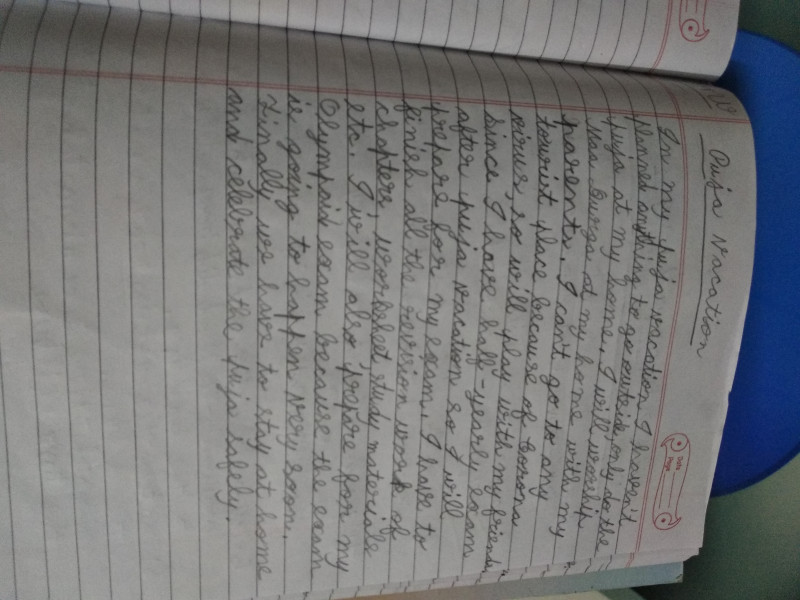 Puja Vacation
In my puja vacation I haven't
planed anything to go outside, only do the
puja at my home. I will worship
Maa Durga at my home with my
parents. I can't go to any
tourist place because of corona
virus, so will play with my friends,
Since I have half-yearly exam
after puja vacation so I will
prepare for my exam. I have to
finish all the revision work of
chapters, worksheet, study materials
etc. I will also prepare for my
Olympaid exam because the exam
is going to happen very soon.
Finally we have to stay at home
and celebrate the puja safely.